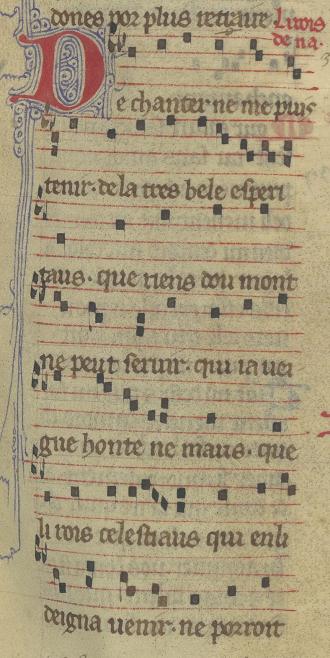 dones por plus retraire. Li rois
de na-
De chanter ne me puis
tenir. de la tres bele esperi
taus. que riens dou mont
ne peut seruir. qui ia uei
gne honte ne maus. que
li rois celestiaus qui en li
deigna uenir. ne porroit